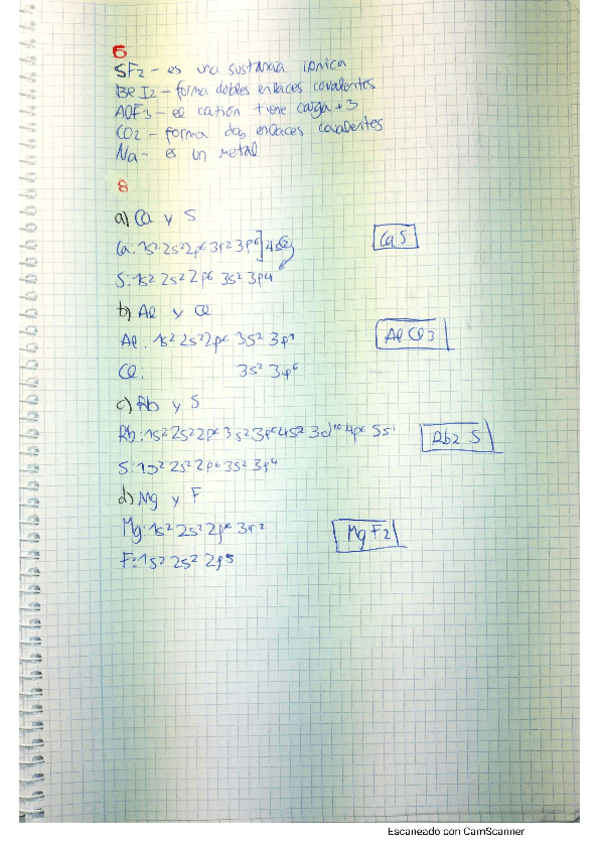 6
SF2 - es una sustancia iónica
Be I2 - forma dobles enlaces covalentes
AlF3 - el catión tiene carga +3
CO2 - forma dos enlaces covalentes
Na - es un metal
8
a) Ca y S
Ca: 1s² 2s² 2p⁶ 3s² 3p⁶] 4s²
CaS
S: 1s² 2s² 2p⁶ 3s² 3p⁴
b) Al y Cl
Al: 1s² 2s² 2p⁶ 3s² 3p¹
AlCl3
Cl: 3s² 3p⁶
c) Rb y S
Rb: 1s² 2s² 2p⁶ 3s² 3p⁶ 4s² 3d¹⁰ 4p⁶ 5s¹
Rb2 S
S: 1s² 2s² 2p⁶ 3s² 3p⁴
d) Mg y F
Mg: 1s² 2s² 2p⁶ 3s²
MgF2
F: 1s² 2s² 2p⁵
Escaneado con CamScanner